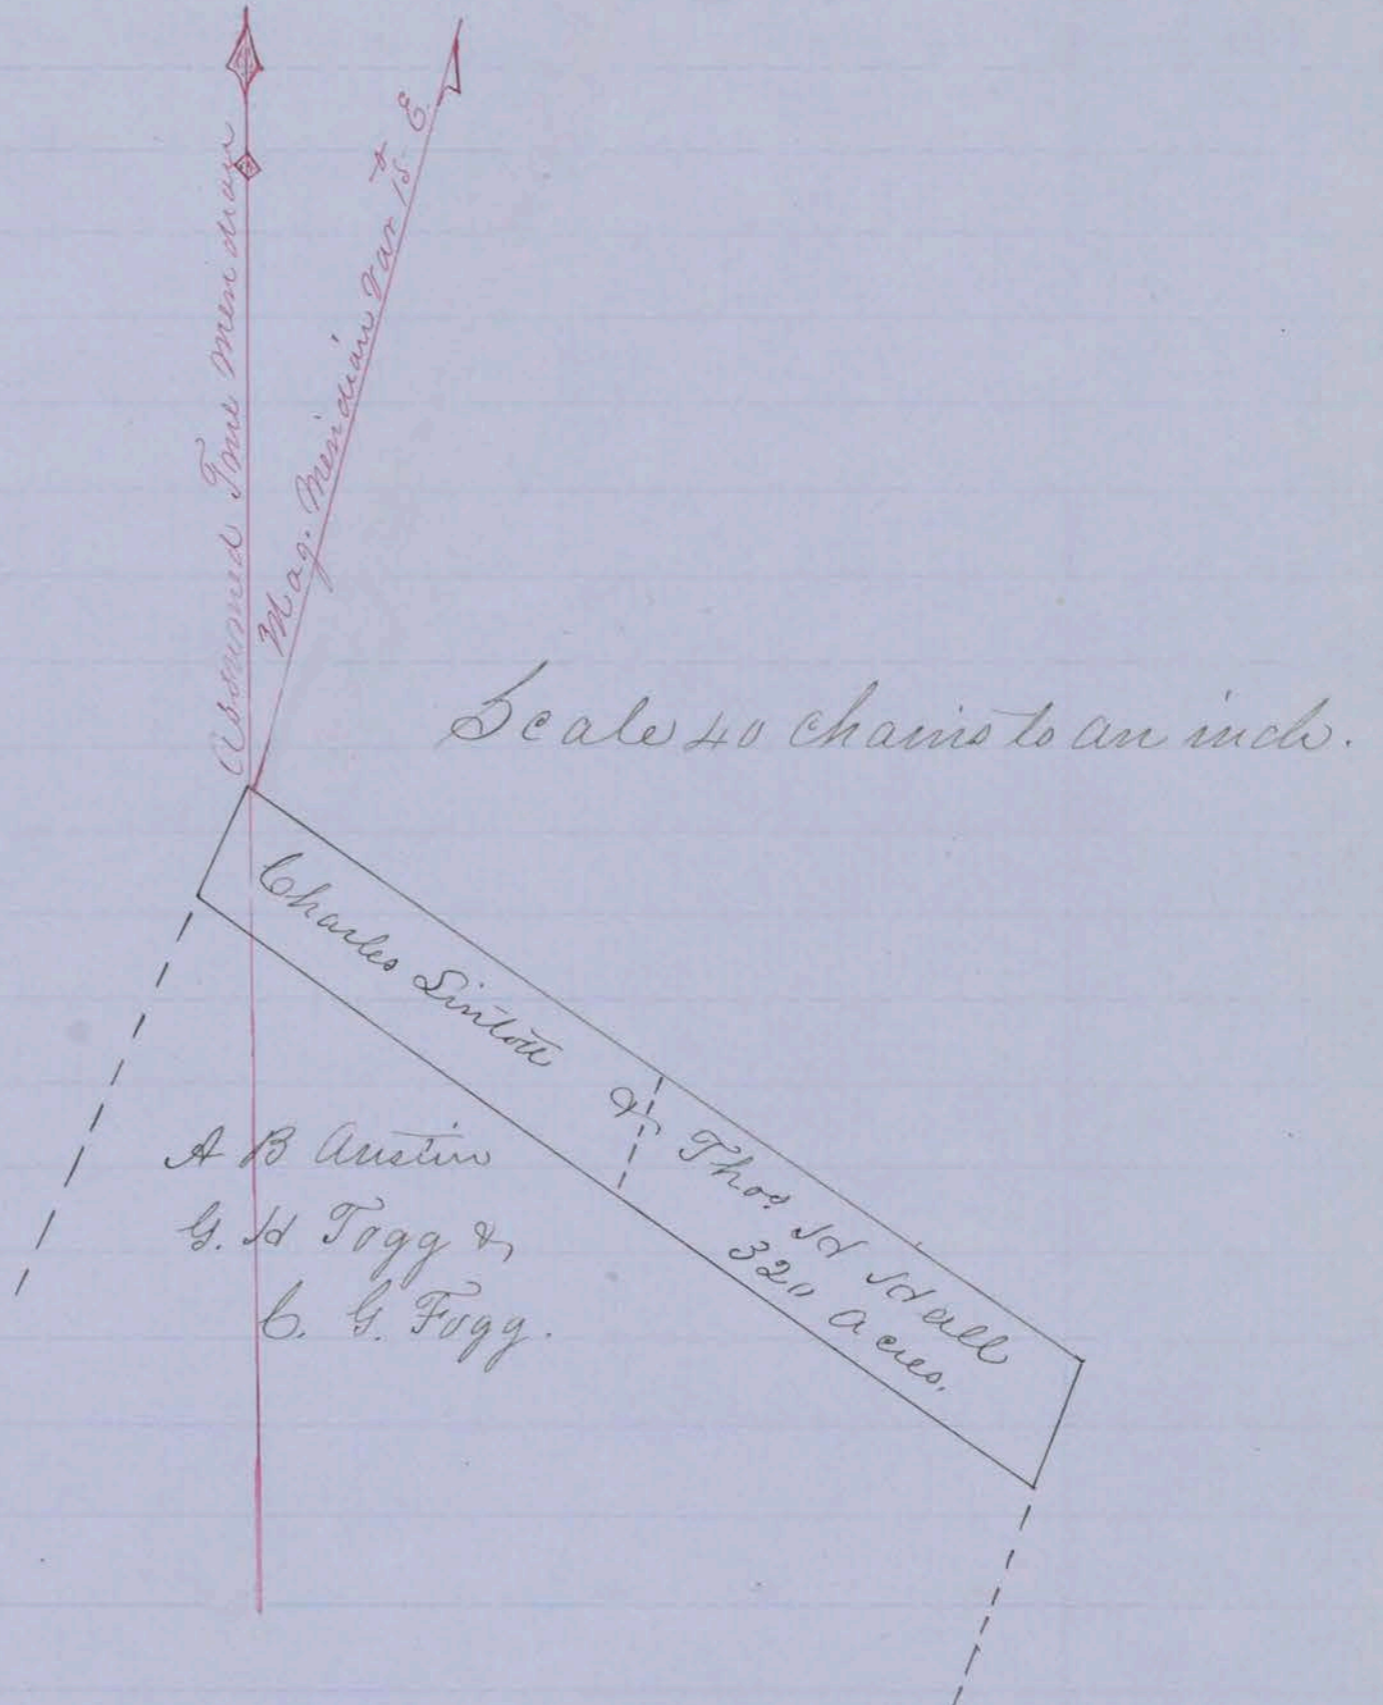 Assumed True Meridian
Mag. Meridian Var 15° E.
Scale 40 chains to an inch.
Charles Sintott
& Thos. H Hall
320 Acres.
A B Austin
G. H Fogg &
C. G. Fogg.